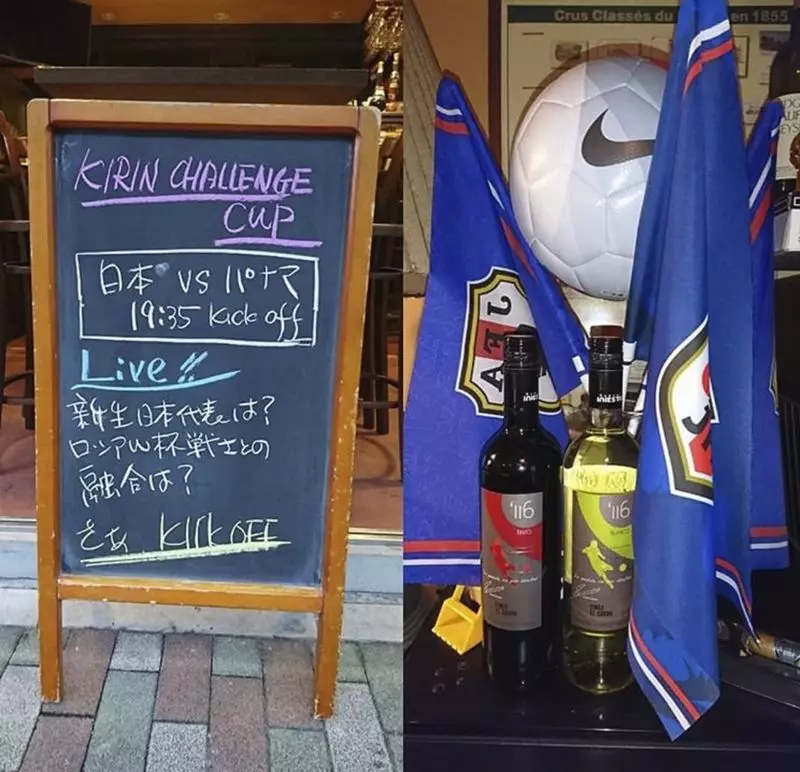 KIRIN CHALLENGE
CUP
日本 VS パナマ
19:35 Kick off
Live!!
新生日本代表は?
ロシアW杯戦士との
融合は?
さあ KICK OFF
Crus Classés du
en 1855
JFA
INIESTA
116
TINTO
116
BLANCO